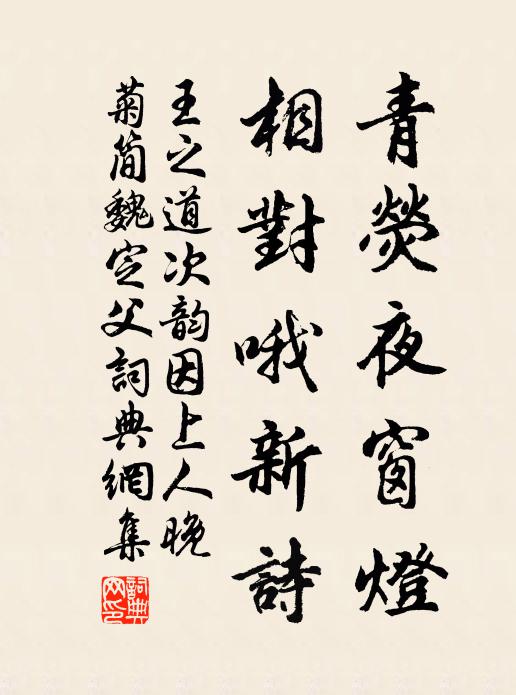 青熒夜窗燈
相對哦新詩
王之道次韵因上人晚
菊简魏定父詞典網集
詞典網印